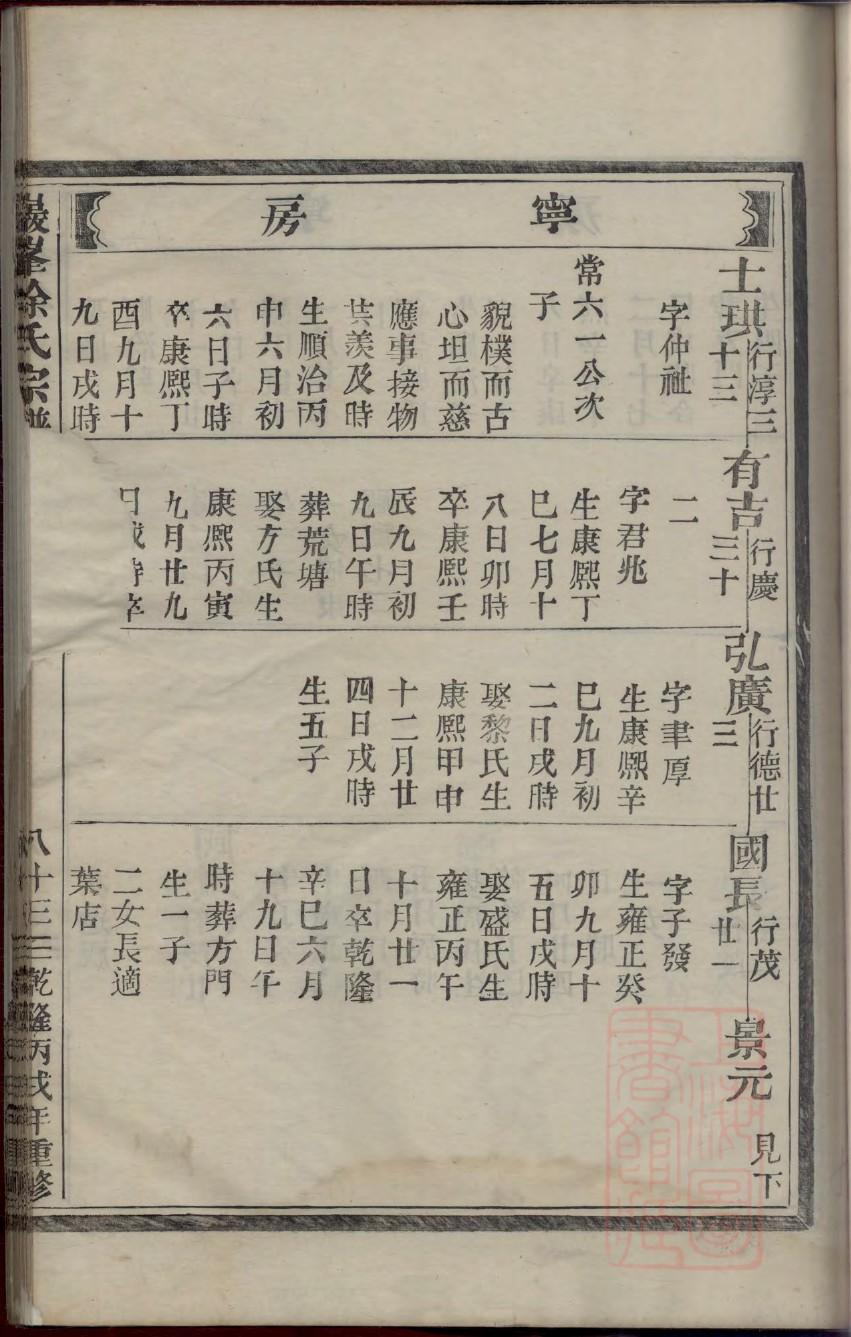 寧房
士珙
行淳三
十三
字仲祉
常六一公次
子
貌樸而古
心坦而慈
應事接物
共羨及時
生順治丙
申六月初
六日子時
卒康熈丁
酉九月十
九日戌時
有吉
行慶
三十
二
字君兆
生康熈丁
巳七月十
八日卯時
卒康熈壬
辰九月初
九日午時
葬荒塘
娶方氏生
康熈丙寅
九月廿九
日戌時卒
弘廣
行德廿
三
字聿厚
生康熈辛
巳九月初
二日戌時
娶黎氏生
康熈甲申
十二月廿
四日戌時
生五子
國長
行茂
廿一
字子發
生雍正癸
卯九月十
五日戌時
娶盛氏生
雍正丙午
十月廿一
日卒乾隆
辛巳六月
十九日午
時葬方門
生一子
二女長適
葉店
景元
見下
巖峯徐氏宗譜
八十三
乾隆丙戌年重修
上海圖
書館藏